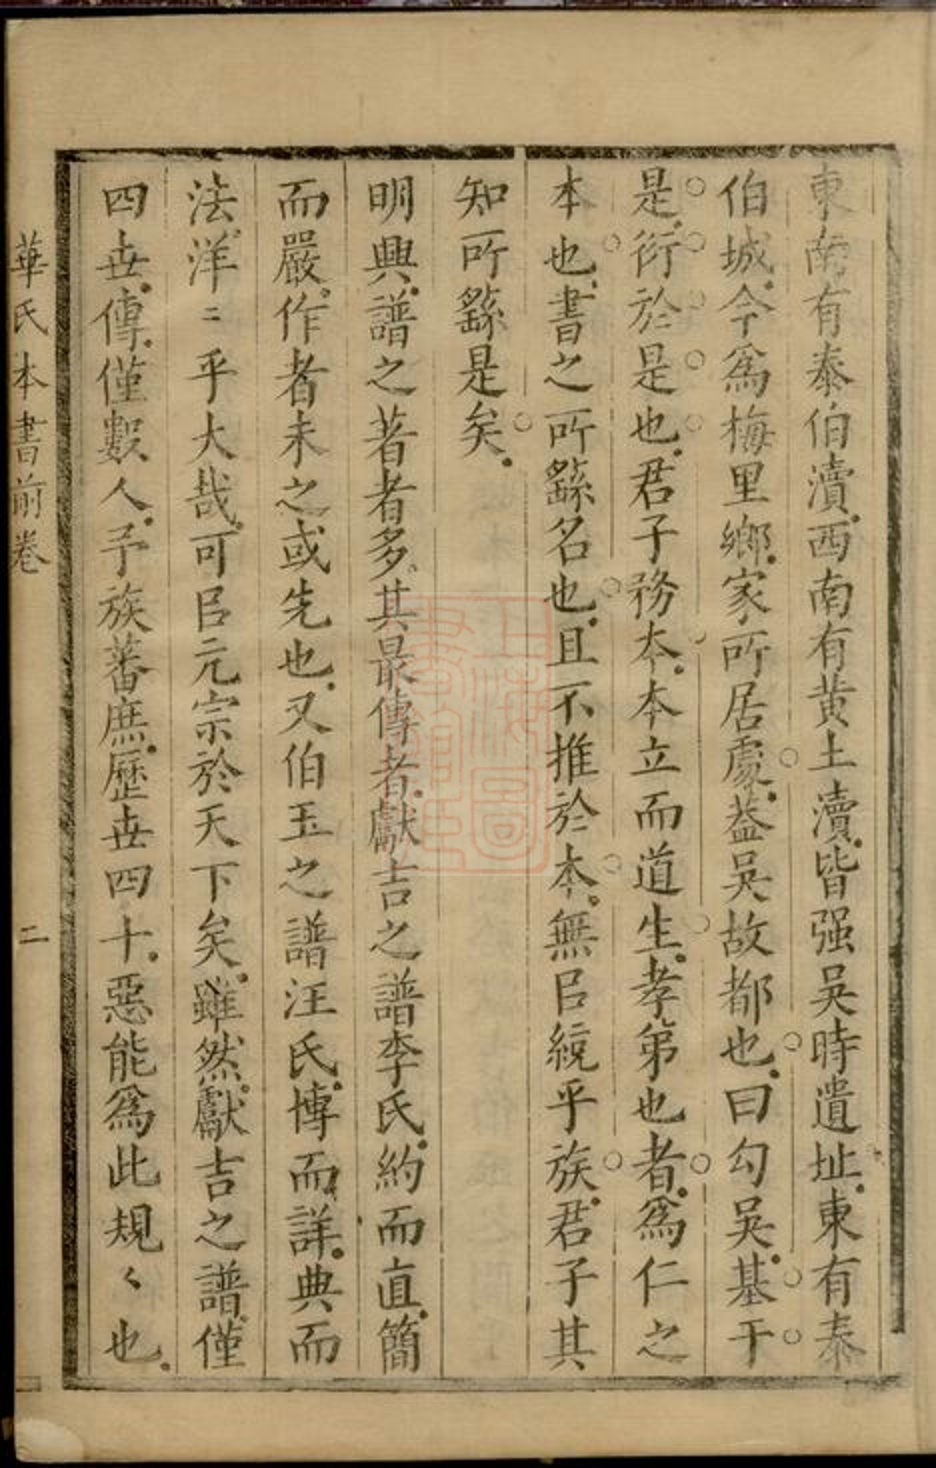 東南有泰伯瀆西南有黃土瀆皆强吳時遺址東有泰
伯城今爲梅里鄉家所居處葢吳故都也曰勾吳基于
是衍於是也君子務本本立而道生孝弟也者爲仁之
本也書之所繇名也且不推於本無㠯統乎族君子其
知所繇是矣
明興譜之著者多其最傳者獻吉之譜李氏約而直簡
而嚴作者未之或先也又伯玉之譜汪氏博而詳典而
法洋〻乎大哉可㠯元宗於天下矣雖然獻吉之譜僅
四世傳僅數人予族蕃庶歷世四十惡能爲此規〻也
華氏本書前卷
二
上海圖書館藏